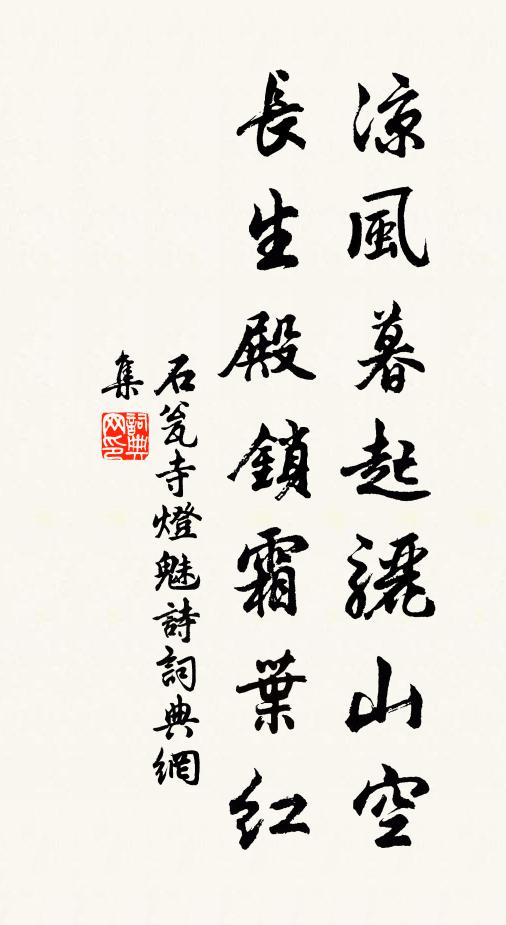 凉風暮起驪山空
長生殿鎖霜葉紅
石瓮寺燈魅詩詞典網
集
詞典
网印